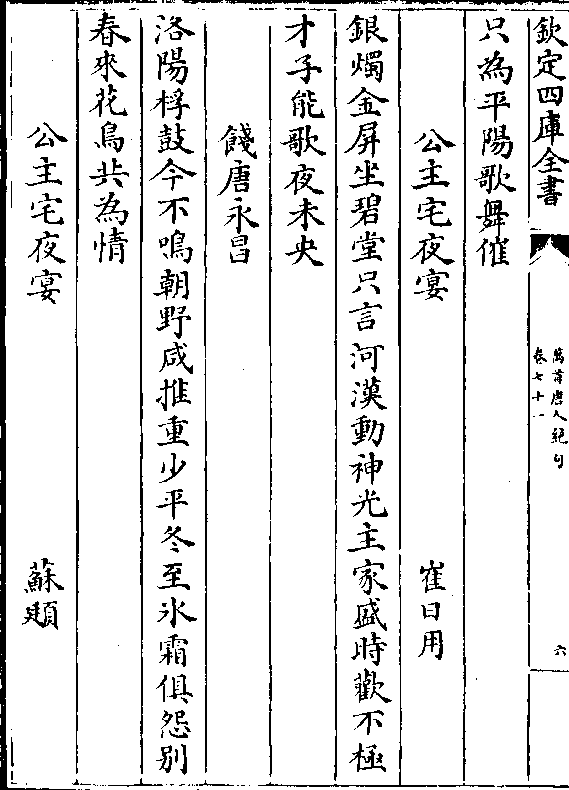 欽定四庫全書
萬首唐人絕句
卷七十一
六
只為平陽歌舞催
公主宅夜宴 崔日用
銀燭金屏坐碧堂只言河漢動神光主家盛時歡不極
才子能歌夜未央
餞唐永昌
洛陽桴鼓今不鳴朝野咸推重少平冬至氷霜俱怨别
春來花鳥共為情
公主宅夜宴 蘇頲